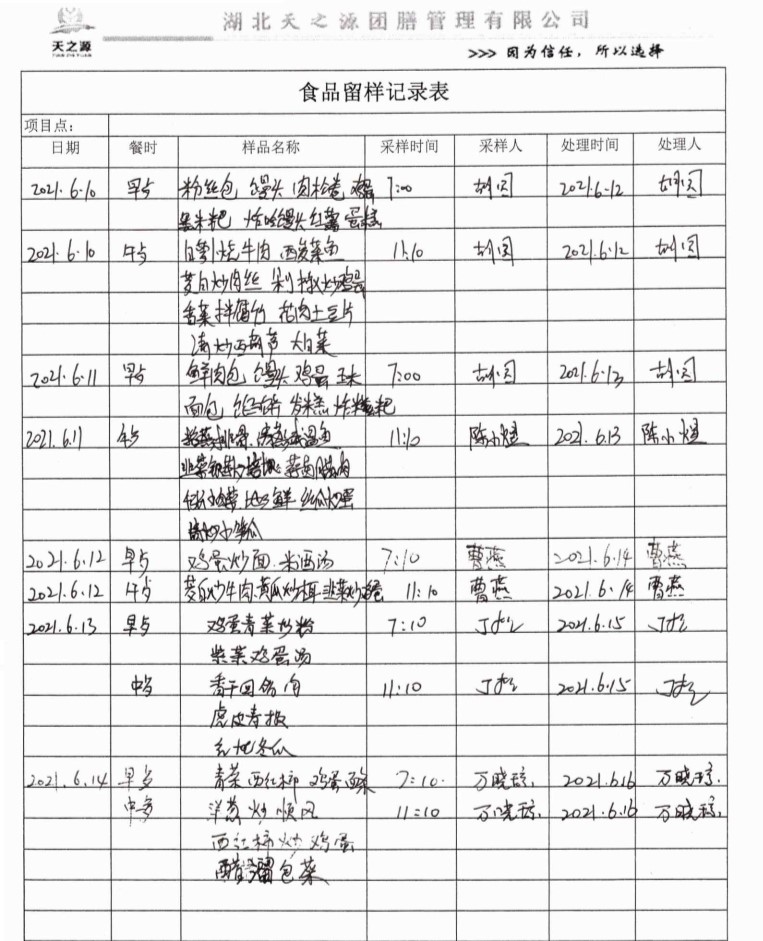 湖北天之源团膳管理有限公司
天之源
TIAN ZHI YUAN
>>> 因为信任，所以选择
食品留样记录表
项目点：
日期 餐时 样品名称 采样时间 采样人 处理时间 处理人
2021.6.10 早点 粉丝包 馒头 肉松卷 7:00 胡闵 2021.6.12 胡闵
黑米粑 馒头 红薯 蛋糕
2021.6.10 午点 白萝卜烧牛肉 酸菜鱼 11:10 胡闵 2021.6.12 胡闵
茭白炒肉丝 剁椒炒鸡蛋
香菜拌腐竹 花肉土豆片
清炒西葫芦 大白菜
2021.6.11 早点 鲜肉包 馒头 鸡蛋 玉米 7:00 胡闵 2021.6.13 胡闵
面包 发糕 炸糍粑
2021.6.11 午点 11:10 陈小煜 2021.6.13 陈小煜
韭菜 蒜苗腊肉
地三鲜 丝瓜炒蛋
清炒小
2021.6.12 早点 鸡蛋炒面.米酒汤 7:10 曹燕 2021.6.14 曹燕
2021.6.12 午点 茭瓜炒牛肉.黄瓜炒 韭菜炒鸡蛋 11:10 曹燕 2021.6.14 曹燕
2021.6.13 早点 鸡蛋青菜炒粉 7:10 2021.6.15
紫菜鸡蛋汤
中点 香干回锅肉 11:10 2021.6.15
虎皮青椒
红烧冬瓜
2021.6.14 早点 青菜 西红柿 鸡蛋面条 7:10. 万晓琼. 2021.6.16 万晓琼.
中点 洋葱炒顺风 11:10 万晓琼. 2021.6.16 万晓琼.
西红柿炒鸡蛋
醋溜包菜